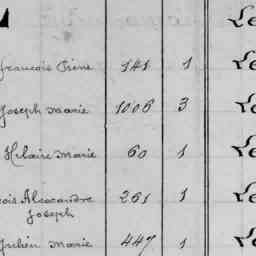 François Pierre 141 1 Le
Joseph Marie 1006 3 Le
Hilaire Marie 60 1 Le
Alexandre 261 1 Le
Joseph
Julien Marie 447 1 Le